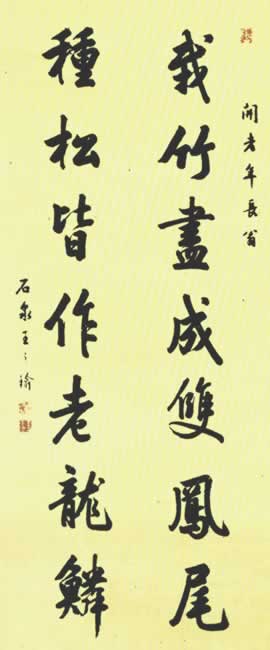 年長翁
栽竹盡成雙鳳尾
種松皆作老龍鱗
石泉王